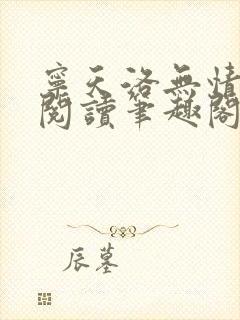 寧天洛無情
閱讀筆趣閣
辰墓